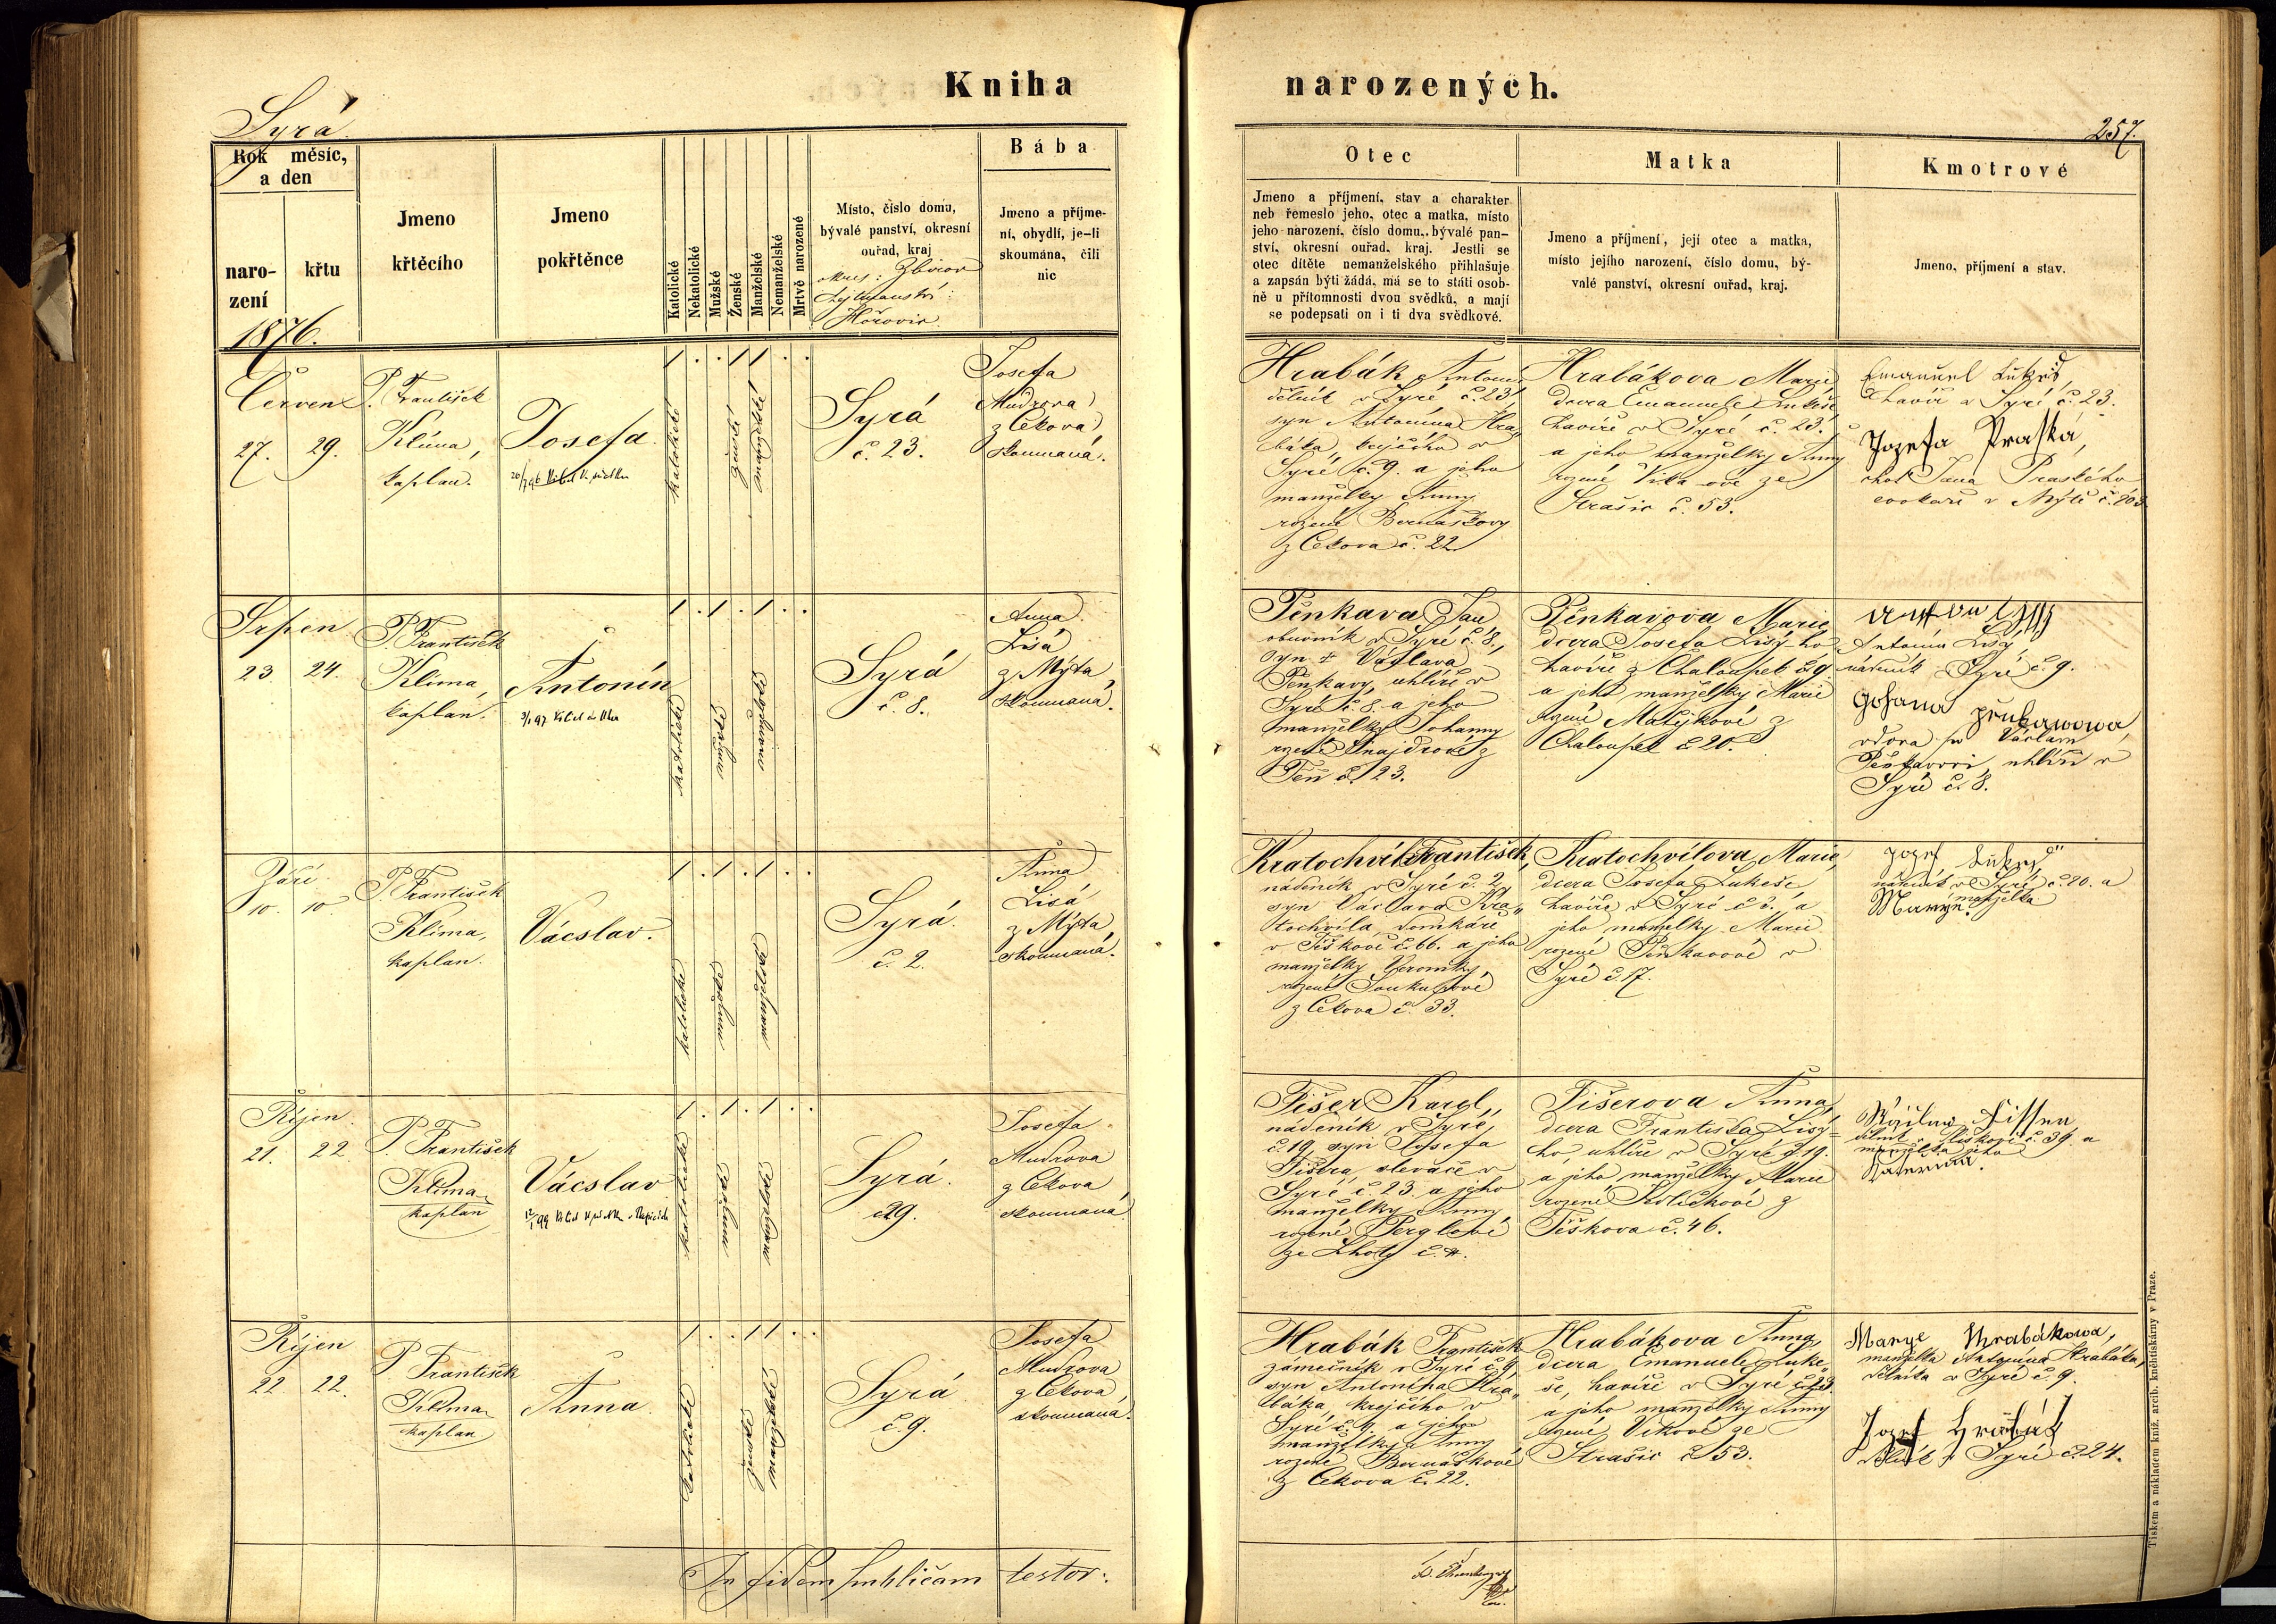 Kniha narozených.
Syrá
257.
Rok měsíc,
a den
naro-
zení
křtu
1876.
Jmeno
křtěcího
Jmeno
pokřtěnce
Katolické
Nekatolické
Mužské
Ženské
Manželské
Nemanželské
Mrtvě narozené
Místo, číslo domu,
bývalé panství, okresní
ouřad, kraj
okres: Zbirov
hejtmanství:
Hořovic
Bába
Jmeno a příjme-
ní, obydlí, je-li
skoumána, čili
nic
Otec
Jmeno a příjmení, stav a charakter
neb řemeslo jeho, otec a matka, místo
jeho narození, číslo domu, bývalé pan-
ství, okresní ouřad, kraj. Jestli se
otec dítěte nemanželského přihlašuje
a zapsán býti žádá, má se to státi osob-
ně u přítomnosti dvou svědků, a mají
se podepsati on i ti dva svědkové.
Matka
Jmeno a příjmení, její otec a matka,
místo jejího narození, číslo domu, bý-
valé panství, okresní ouřad, kraj.
Kmotrové
Jmeno, příjmení a stav.
Červen
27. 29.
P. František
Klima,
kaplan.
Josefa
katolické
ženské
manželské
Syrá
č. 23.
Josefa
Mudrova
z Cekova
skoumaná.
Hrabák Antonín
dělník v Syré č. 23,
syn Antonína Hra„
báka, krejčího v
Syré č. 9. a jeho
manželky Anny
rozené Bernaškovy
z Cekova č. 22
Hrabákova Marie
dcera Emanuele Lukeše
havíře v Syré č. 23.
a jeho manželky Anny
rozené ze
Strašic č. 53.
Emanuel Lukeš,
havíř v Syré č. 23.
Jozefa Praská,
choť Jana Praského
v Mýtě
Srpen
23. 24.
P. František
Klima,
kaplan.
Antonín
katolické
mužské
manželské
Syrá
č. 8.
Anna
Lisá
z Mýta,
skoumaná.
Pěnkava Jan
obuvník v Syré č. 8,
syn † Václava
Pěnkavy, uhlíře v
Syré č. 8. a jeho
manželky Johanny
rozené Šnajdrové z
Těň č. 23.
Pěnkavova Marie
dcera Josefa Lisý-ho
havíře z Chaloupek č. 9.
a jeho manželky Marie
rozené Matějkové z
Chaloupek č. 20.
Antonín Lisý,
nádeník v Syré č. 9.
vdova po Václavu
Pěnkavovi, uhlíři v
Syré č. 8.
Září
10. 10.
P. František
Klima,
kaplan.
Václav.
katolické
mužské
manželské
Syrá.
č. 2.
Anna
Lisá
z Mýta,
skoumaná.
Kratochvíl František,
nádeník v Syré č. 2,
syn Václava Kra„
tochvíla, domkáře
v Těškově č. 66. a jeho
manželky Veroniky,
rozené Soukupové
z Cekova č. 33.
Kratochvílova Marie,
dcera Josefa Lukeše,
havíře v Syré a
jeho manželky Marie
rozené Pěnkavové v
Syré č. 7.
Jozef Lukeš
nádeník v Syré č. 20. a
manželka
Marye.
Říjen
21. 22.
P. František
Klima
kaplan
Václav
katolické
mužské
manželské
Syrá.
Josefa
Mudrova
z Cekova
skoumaná
Fišer Karel,
nádeník v Syré,
č. 19, syn Josefa
Fišera, slevače v
Syré č. 23. a jeho
manželky Anny
rozené Perglové
ze Lhoty
Fišerova Anna,
dcera Františka Lisý-
ho, uhlíře v Syré č. 19.
a jeho manželky Marie
rozené Sedličkové z
Těškova č. 46.
č. 39. a
manželka jeho
Kateřina.
Říjen
22. 22.
P. František
Klima
kaplan
Anna
katolické
ženské
manželské
Syrá
č. 9.
Josefa
Mudrova
z Cekova,
skoumaná.
Hrabák František
zámečník v Syré č. 9,
syn Antonína Hra„
báka, krejčího v
Syré č. 9. a jeho
manželky Anny
rozené Bernaškové
z Cekova č. 22.
Hrabákova Anna,
dcera Emanuele Luke„
še, havíře v Syré č. 23.
a jeho manželky Anny
rozené Vikové ze
Strašic č. 53.
Marye Hrabákowa,
manželka Antonína Hrabáka,
dělníka v Syré č. 9.
Jozef Hrabák
v Syré č. 24.
In fidem publicam testor:
Tiskem a nákladem kníž. arcib. knihtiskárny v Praze.